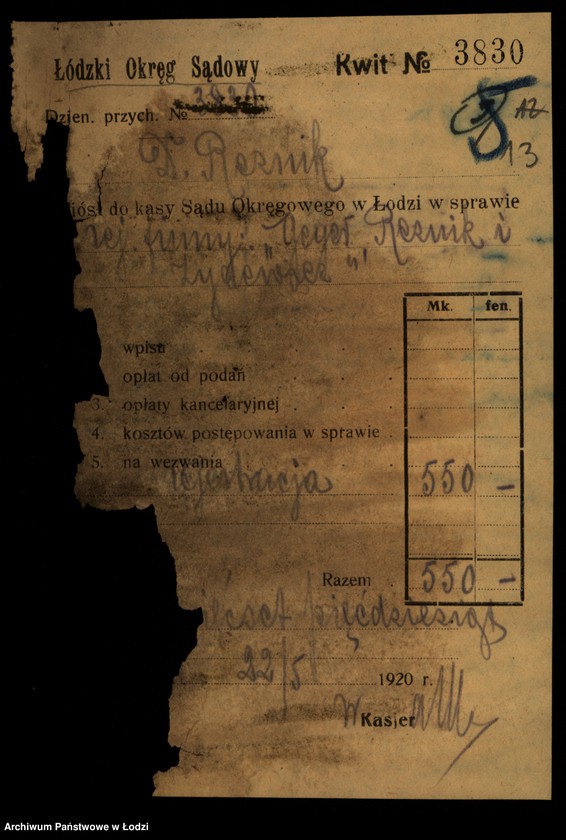 Łódzki Okręg Sądowy Kwit № 3830
Dzien. przych. №
13
D. Reznik
do kasy Sądu Okręgowego w Łodzi w sprawie
rej. firmy: Reznik i
Mk. fen.
wpisu
opłat od podań
3. opłaty kancelaryjnej
4. kosztów postępowania w sprawie
5. na wezwania
rejestracja 550 —
Razem 550 —
pięćdziesiąt
22/5 1920 r.
Kasjer
Archiwum Państwowe w Łodzi